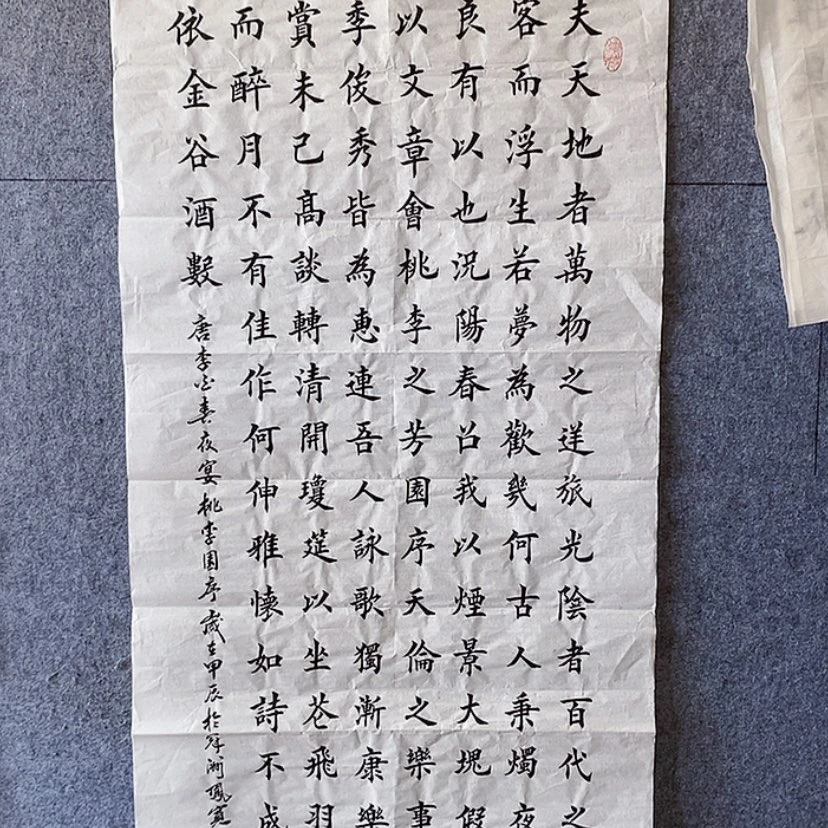 夫天地者萬物之逆旅光陰者百代之
客而浮生若夢為歡幾何古人秉燭夜
良有以也況陽春召我以煙景大塊假
以文章會桃李之芳園序天倫之樂事
季俊秀皆為惠連吾人詠歌獨漸康樂
賞未已髙談轉清開瓊筵以坐花飛羽
而醉月不有佳作何伸雅懷如詩不成
依金谷酒數
唐李白春夜宴桃李園序歲在甲辰於